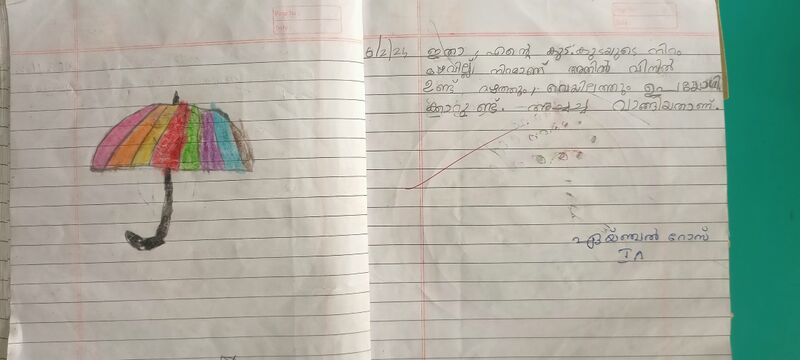 Page No.
Date
6/2/24 ഇതാ, എന്റെ കുട. കുടയുടെ നിറം
മഴവില്ല് നിറമാണ് അതിൽ വിസിൽ
ഉണ്ട്. മഴത്തും, വെയിലത്തും ഉപയോഗി
ക്കാറുണ്ട്. അച്ഛച്ച വാങ്ങിയതാണ്.
ഏയ്ഞ്ചൽ റോസ്
I A